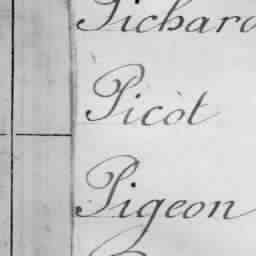 Pichard
Picot
Pigeon